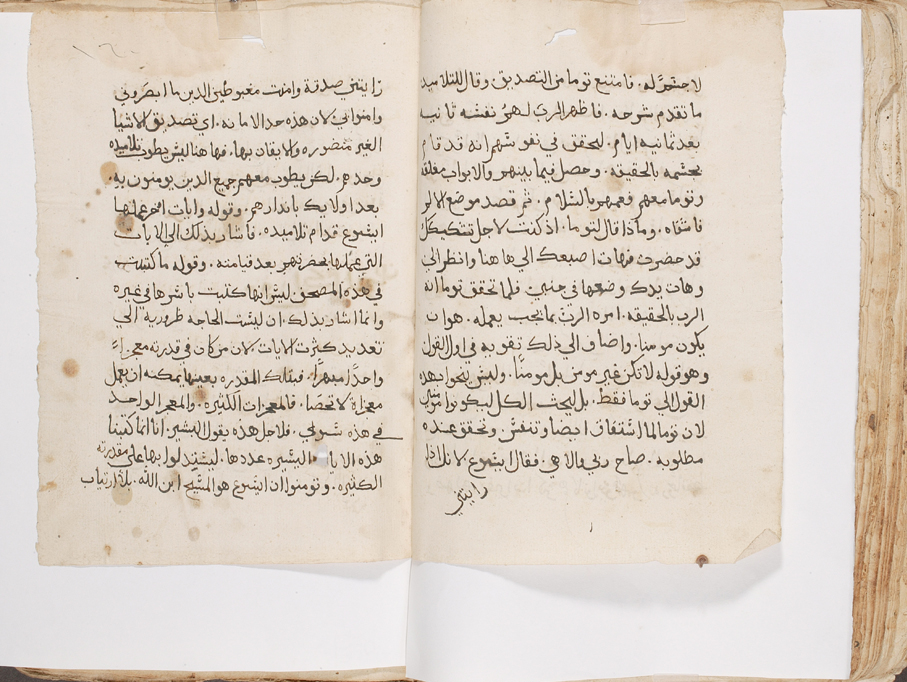 لا جسم له. فامتنع توما من التصديق وقال للتلاميد
ما تقدم شرحه. فاظهر الرب لهم نفسه ثانيه
بعد ثمانيه ايام. ليحقق في نفوسهم انه قد قام
بجسمه بالحقيقه. وحصل فيما بينهم والابواب مغلقه
وتوما معهم فعمهم بالسلام. ثم قصد موضع الالم
فاشفاه. وماذا قال لتوما. اذ كنت لاجل تشكيكك
قد حضرت فهات اصبعك الي هاهنا وانظر الي
وهات يدك وضعها في جنبي. فلما تحقق توما انه
الرب بالحقيقه. امره الرب بما يجب يعمله. هو ان
يكون مومنا. واضاف الي ذلك تقويه في اول القول
وهو قوله لا تكن غير مومن بل مومنا. وليس يتجوا بهده
القول الي توما فقط. بل ليبحث الكل ليكونوا مومنين
لان توما لما استفاق ايضا وتنفس. وتحقق عنده
مطلوبه. صاح ربي والاهي. فقال ايسوع لانك اذا
رايتني
رايتني صدقة وامنت مغبوطين الدين ما ابصروني
وامنوا بي لان هذه حد الامانه. اي تصديق الاشيا
الغير منضوره والايقان بها. فها هنا ليس يطوب تلاميده
وحدهم. لكن يطوب معهم جميع الدين يومنون به.
بعد اولايك بانذارهم. وقوله وايات اخر عملها
ايسوع قدام تلاميده. فاشار بذلك الي الايات
التي عملها بحضرتهم بعد قيامته. وقوله ما كتبت
في هذه المصحف ليس انها كتبت باسرها في غيره
وانما اشار بذلك. ان ليست الحاجه ظروريه الي
تعديد كثرت الايات لان من كان في قدرته معجزاً
واحداً مبهراً. فبتلك المقدره بعينها يمكنه ان يعمل
معجزاة لا تحصا. فالمعجزات الكثيره. والمعجز الواحد
في هذه سوا. فلاجل هذه يقول البشير. انا انما كتبنا
هذه الايات اليسيره عددها. ليستدلوا بها على مقدرته
الكثيره. وتومنوا ان ايسوع هو المسيح ابن الله. بلا ارتياب